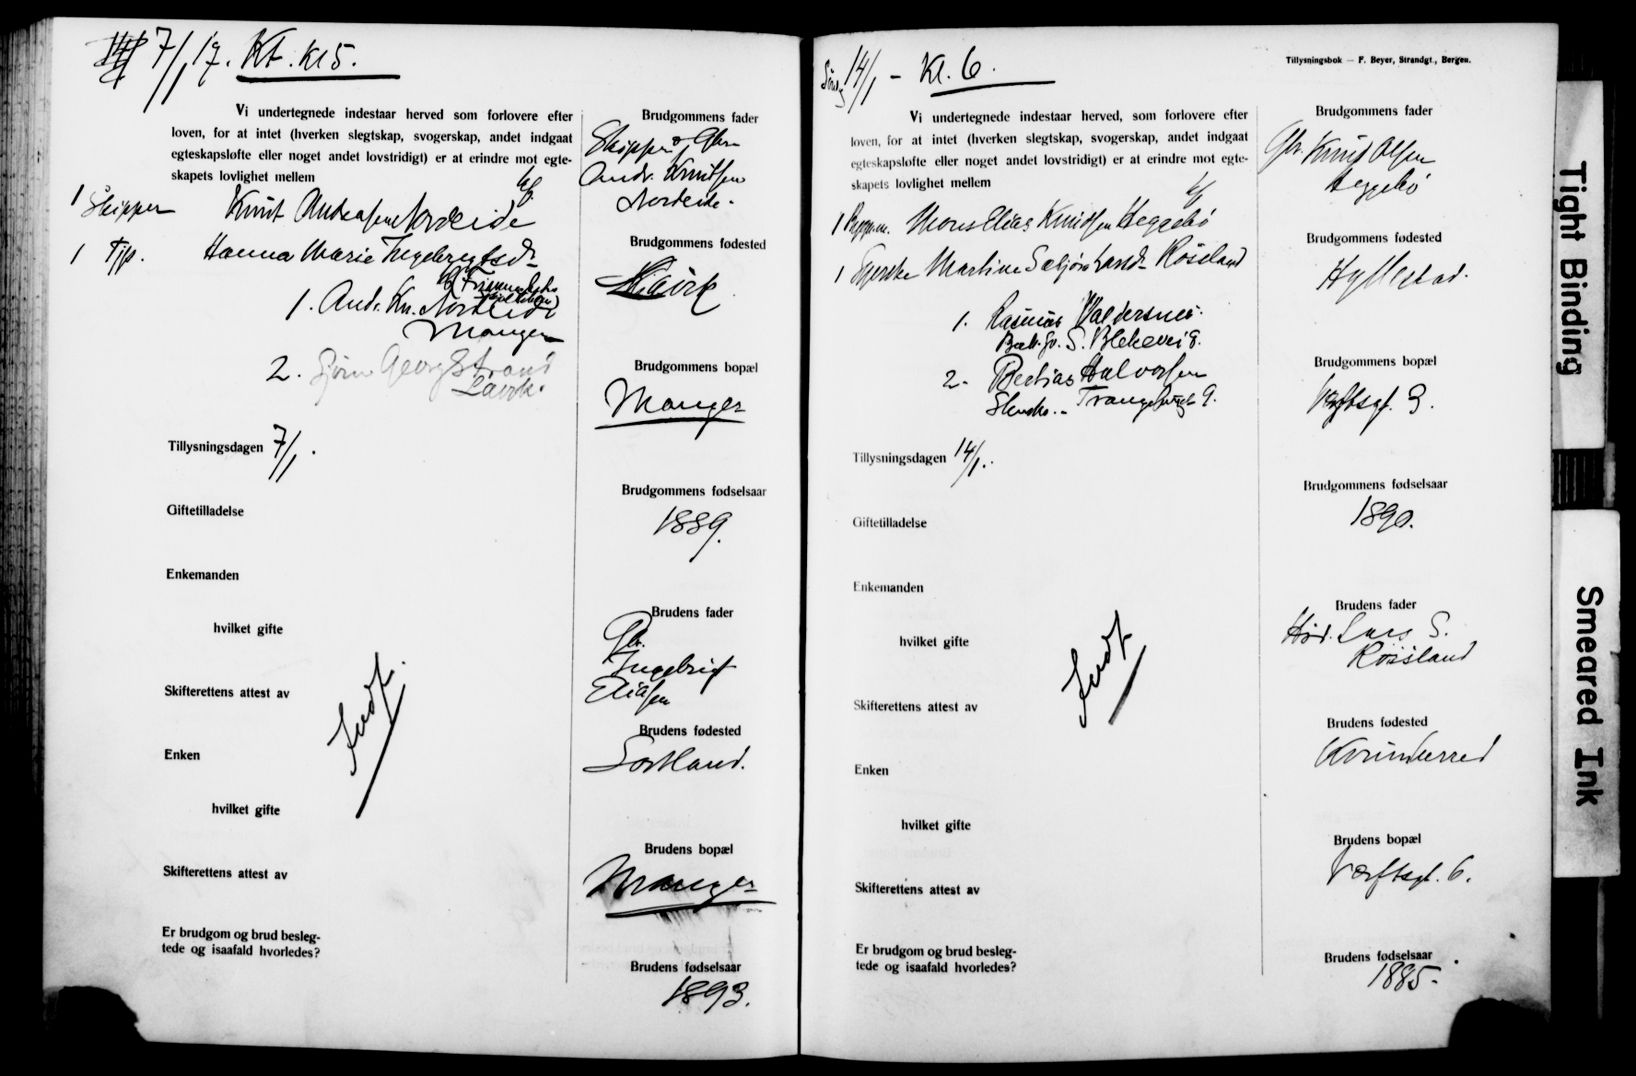 7/1 17. Kt. kl 5.
Vi undertegnede indestaar herved som forlovere efter
loven, for at intet (hverken slegtskap, svogerskap, andet indgaat
egteskapsløfte eller noget andet lovstridigt) er at erindre mot egte-
skapets lovlighet mellem
1 Skipper Knut Andreassen Nordeide
1 Pige. Hanna Marie Ingebrigtsd.
1. And. Kn. Nordeide
Manger
2. Georg Strand
Tillysningsdagen 7/1.
Giftetilladelse
Enkemanden
hvilket gifte
Skifterettens attest av
Enken
hvilket gifte
Skifterettens attest av
Er brudgom og brud besleg-
tede og isaafald hvorledes?
Indf.
Brudgommens fader
Skipper
Andr. Knutsen
Nordeide.
Brudgommens fødested
Brudgommens bopæl
Manger
Brudgommens fødselsaar
1889.
Brudens fader
Gbr.
Ingebrigt
Eliasen
Brudens fødested
Sortland.
Brudens bopæl
Manger
Brudens fødselsaar
1893.
14/1 - Kl. 6.
Tillysningsbok — F. Beyer, Strandgt., Bergen.
Vi undertegnede indestaar herved, som forlovere efter
loven, for at intet (hverken slegtskap, svogerskap, andet indgaat
egteskapsløfte eller noget andet lovstridigt) er at erindre mot egte-
skapets lovlighet mellem
1 Mons Elias Knudsen Heggebø
1 Martine Sæbjørg Larsd. Røssland
1. Rasmus Valdersnes.
S. Blekevei 8.
2. Halvorsen
9.
Tillysningsdagen 14/1.
Giftetilladelse
Enkemanden
hvilket gifte
Skifterettens attest av
Enken
hvilket gifte
Skifterettens attest av
Er brudgom og brud besleg-
tede og isaafald hvorledes?
Indf.
Brudgommens fader
Gbr. Knud Olsen
Heggebø
Brudgommens fødested
Hyllestad.
Brudgommens bopæl
Værftsgt. 3.
Brudgommens fødselsaar
1890.
Brudens fader
Lars S.
Røssland
Brudens fødested
Kvinherred
Brudens bopæl
Værftsgt. 6.
Brudens fødselsaar
1885.
Tight Binding
Smeared Ink